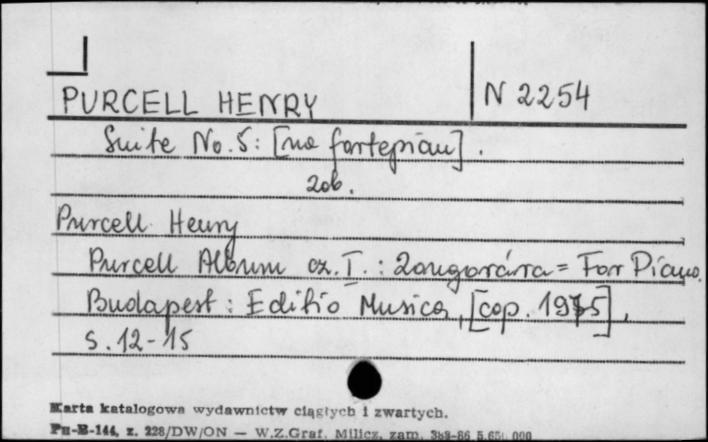 PURCELL HENRY N 2254
Suite No. 5: [na fortepian].
zob.
Purcell Henry
Purcell Album cz. I. : Zongorára = For Piano.
Budapest : Editio Musica, [cop. 1975],
s. 12-15
Karta katalogowa wydawnictw ciągłych i zwartych.
Pu-B-144, z. 228/DW/ON — W.Z.Graf. Milicz, zam. 389-86 5.650.000